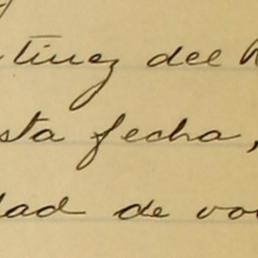 tinez del
sta fecha,
dad de vo